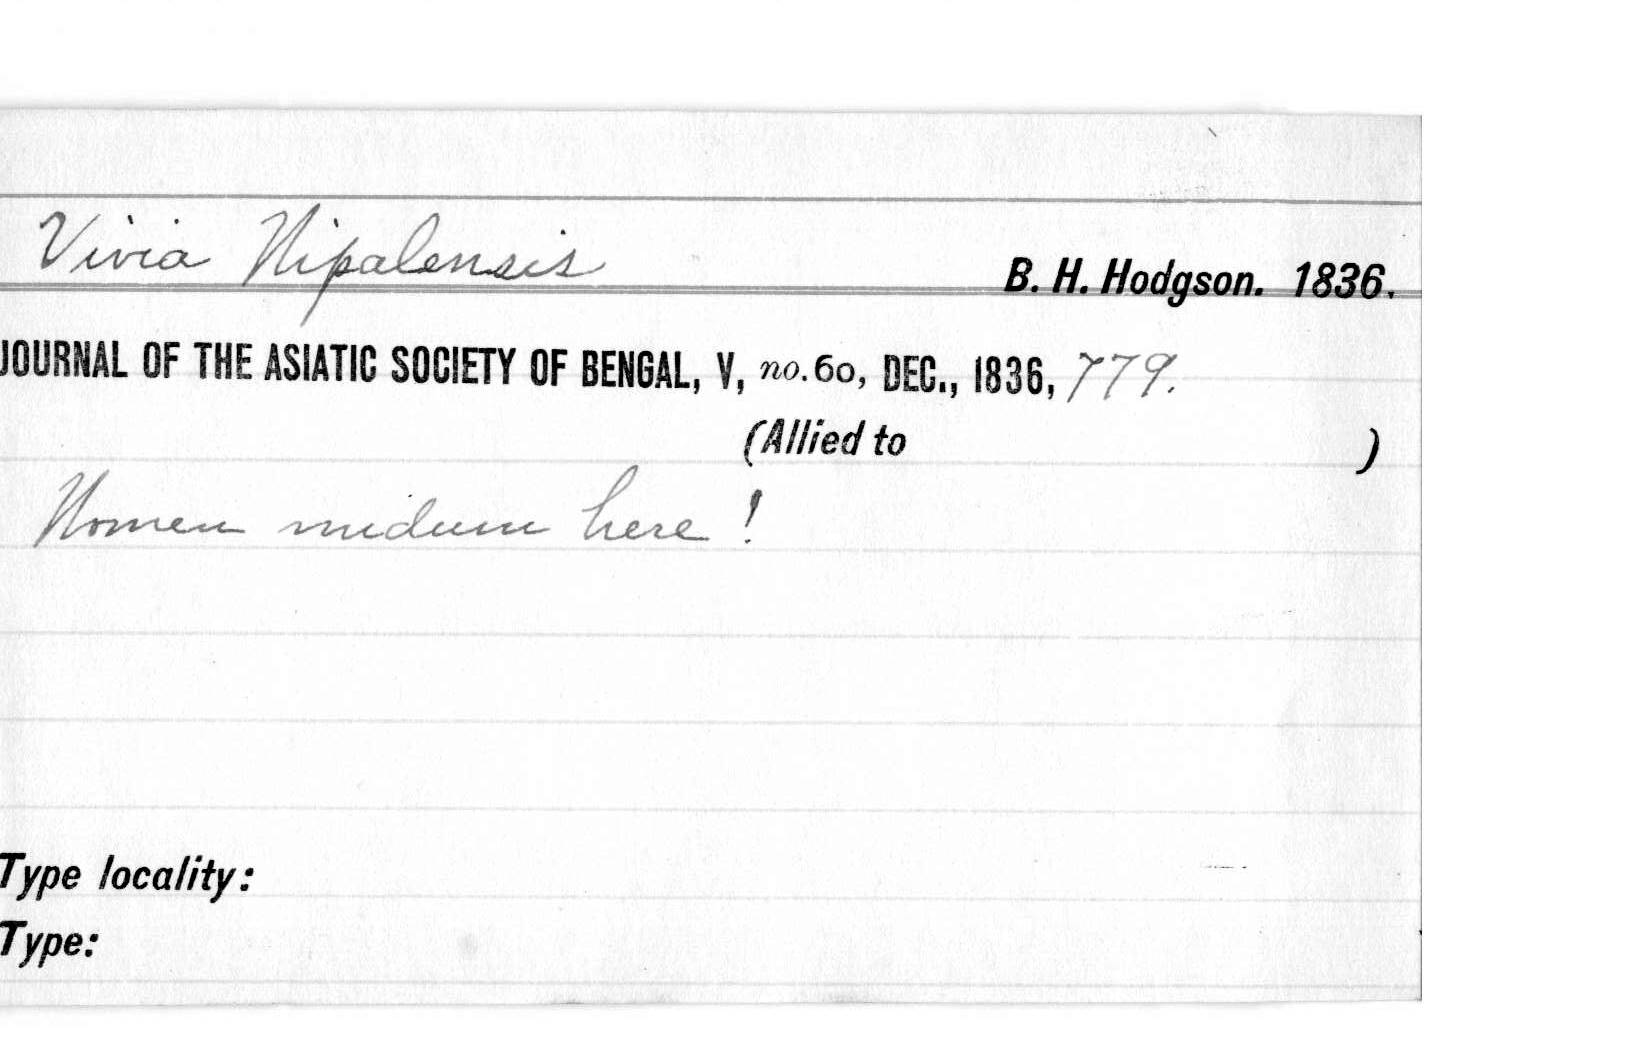 Vivia Nipalensis
B. H. Hodgson. 1836.
JOURNAL OF THE ASIATIC SOCIETY OF BENGAL, V, no. 60, DEC., 1836, 779.
(Allied to )
Nomen nudum here!
Type locality:
Type: